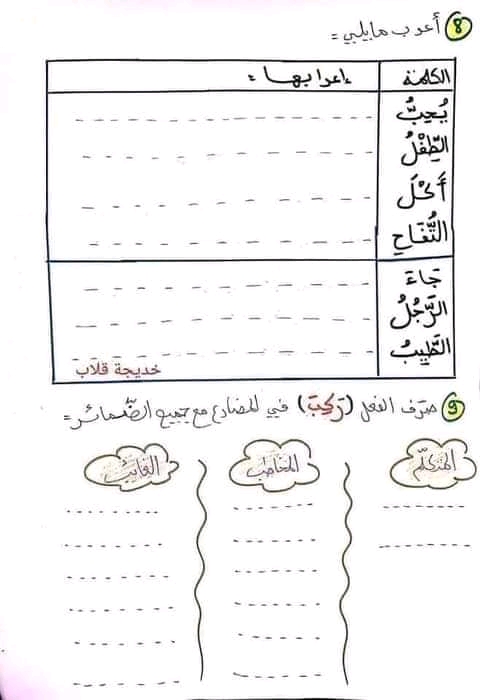 8 أعرب مايلي =
الكلمة إعرابها =
يُحِبُّ
الطِّفْلُ
أَكْلَ
التُّفَاحِ
جَاءَ
الرَّجُلُ
الطَّيِّبُ
خديجة قلاب
9 صرّف الفعل (رَكِبَ) في المضارع مع جميع الضّمائر =
المتكلّم المخاطب الغائب